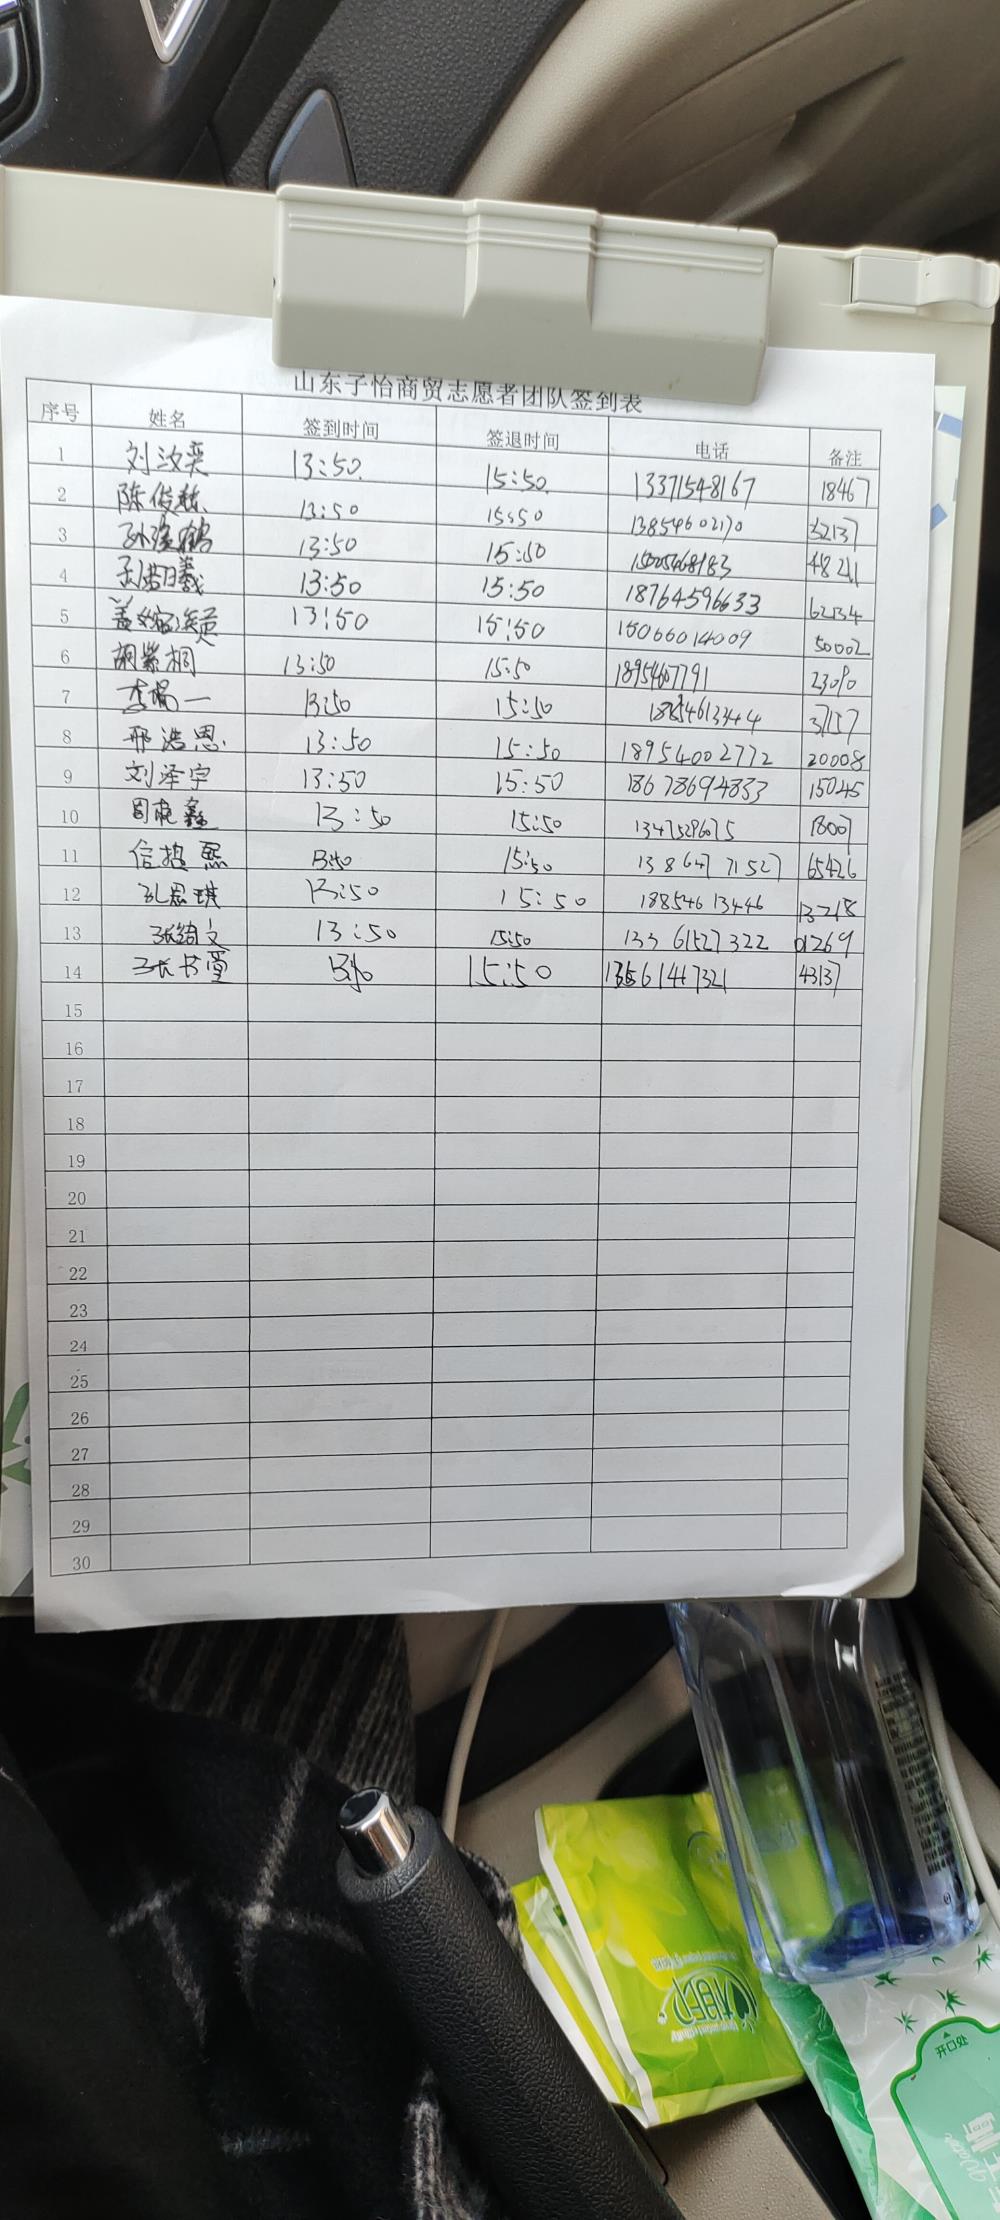 山东子怡商贸志愿者团队签到表
序号 姓名 签到时间 签退时间 电话 备注
1 刘汝奕 13:50 15:50 13371548167 18467
2 陈俊 13:50 15:50 13854602170 32137
3 13:50 15:50 15005468183 48211
4 13:50 15:50 18764596633 62134
5 13:50 15:50 15066014009 50002
6 胡紫桐 13:50 15:50 18954607791 23090
7 李杨一 13:50 15:50 18854613444 37157
8 邢浩恩 13:50 15:50 18954002772 20008
9 刘泽宇 13:50 15:50 18678694833 15045
10 13:50 15:50 13475296075 18007
11 信 熙 13:50 15:50 13864771527 65426
12 孔思琪 13:50 15:50 18854613446 13218
13 张绮文 13:50 15:50 13361527322 01269
14 张书萱 13:50 15:50 43137
15
16
17
18
19
20
21
22
23
24
25
26
27
28
29
30
心相印
开口处